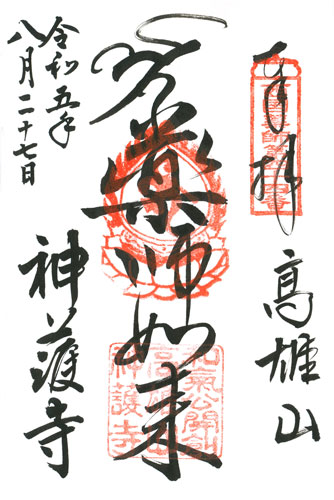 奉拝
高雄山
薬師如来
令和五年
八月二十七日
神護寺
和氣公開創
高雄山
神護寺